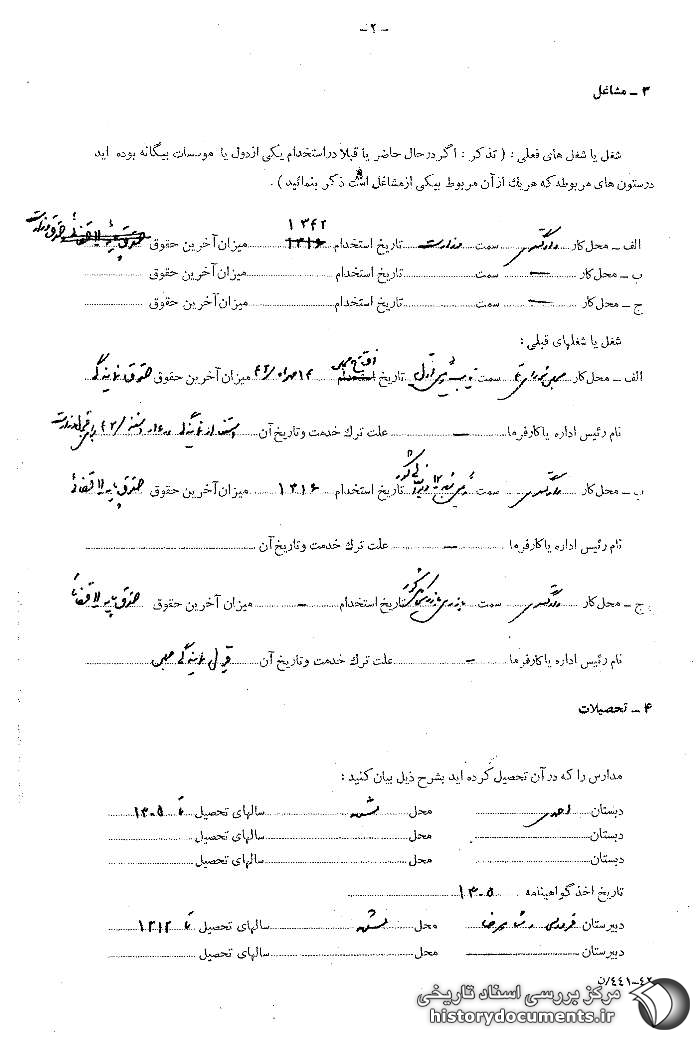 - ۲ -
۳ - مشاغل
شغل یا شغل های فعلی : ( تذکر : اگر در حال حاضر یا قبلا در استخدام یکی از دول یا موسسات بیگانه بوده اید
در ستون های مربوطه که هر یک از آن مربوط بیکی از مشاغل است ذکر بنمائید ) .
۱۳۴۲
الف - محل کار دادگستری سمت وزارت تاریخ استخدام ۱۳۱۶ میزان آخرین حقوق
ب - محل کار — سمت تاریخ استخدام میزان آخرین حقوق
ج - محل کار — سمت تاریخ استخدام میزان آخرین حقوق
شغل یا شغلهای قبلی :
الف - محل کار سمت تاریخ استخدام ۱۴ مهرماه ۴۲ میزان آخرین حقوق حقوق نمایندگی
نام رئیس اداره یا کارفرما — علت ترک خدمت و تاریخ آن
ب - محل کار دادگستری سمت تاریخ استخدام ۱۳۱۶ میزان آخرین حقوق حقوق پایه ۷ قضائی
نام رئیس اداره یا کارفرما — علت ترک خدمت و تاریخ آن
ج - محل کار دادگستری سمت تاریخ استخدام — میزان آخرین حقوق حقوق پایه ۷ قضائی
نام رئیس اداره یا کارفرما — علت ترک خدمت و تاریخ آن قبول نمایندگی مجلس
۴ - تحصیلات
مدارس را که در آن تحصیل کرده اید بشرح ذیل بیان کنید :
دبستان احمدی محل مشهد سالهای تحصیل تا ۱۳۰۵
دبستان محل سالهای تحصیل
دبستان محل سالهای تحصیل
تاریخ اخذ گواهینامه ۱۳۰۵
دبیرستان فردوسی شاهرضا محل مشهد سالهای تحصیل تا ۱۳۱۲
دبیرستان محل سالهای تحصیل
۴۲-۴۴۱/ن
مرکز بررسی اسناد تاریخی
historydocuments.ir